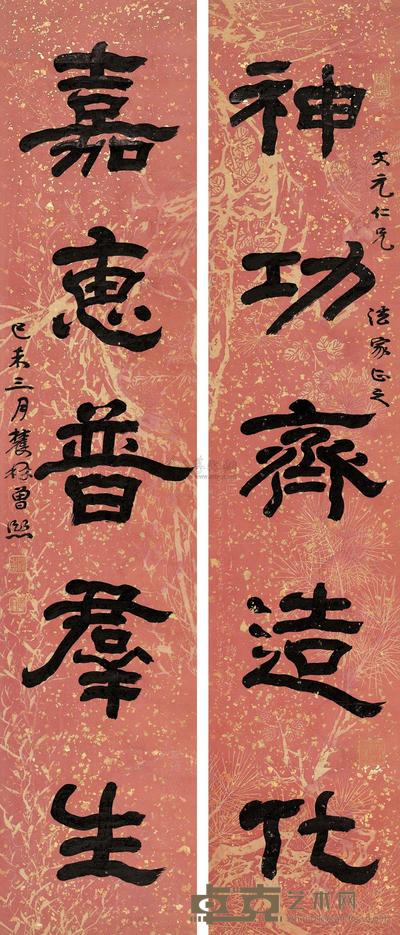 神功齊造化
文元仁兄 法家正之
嘉惠普羣生
己未三月 農髯曾熙
卓克艺术网